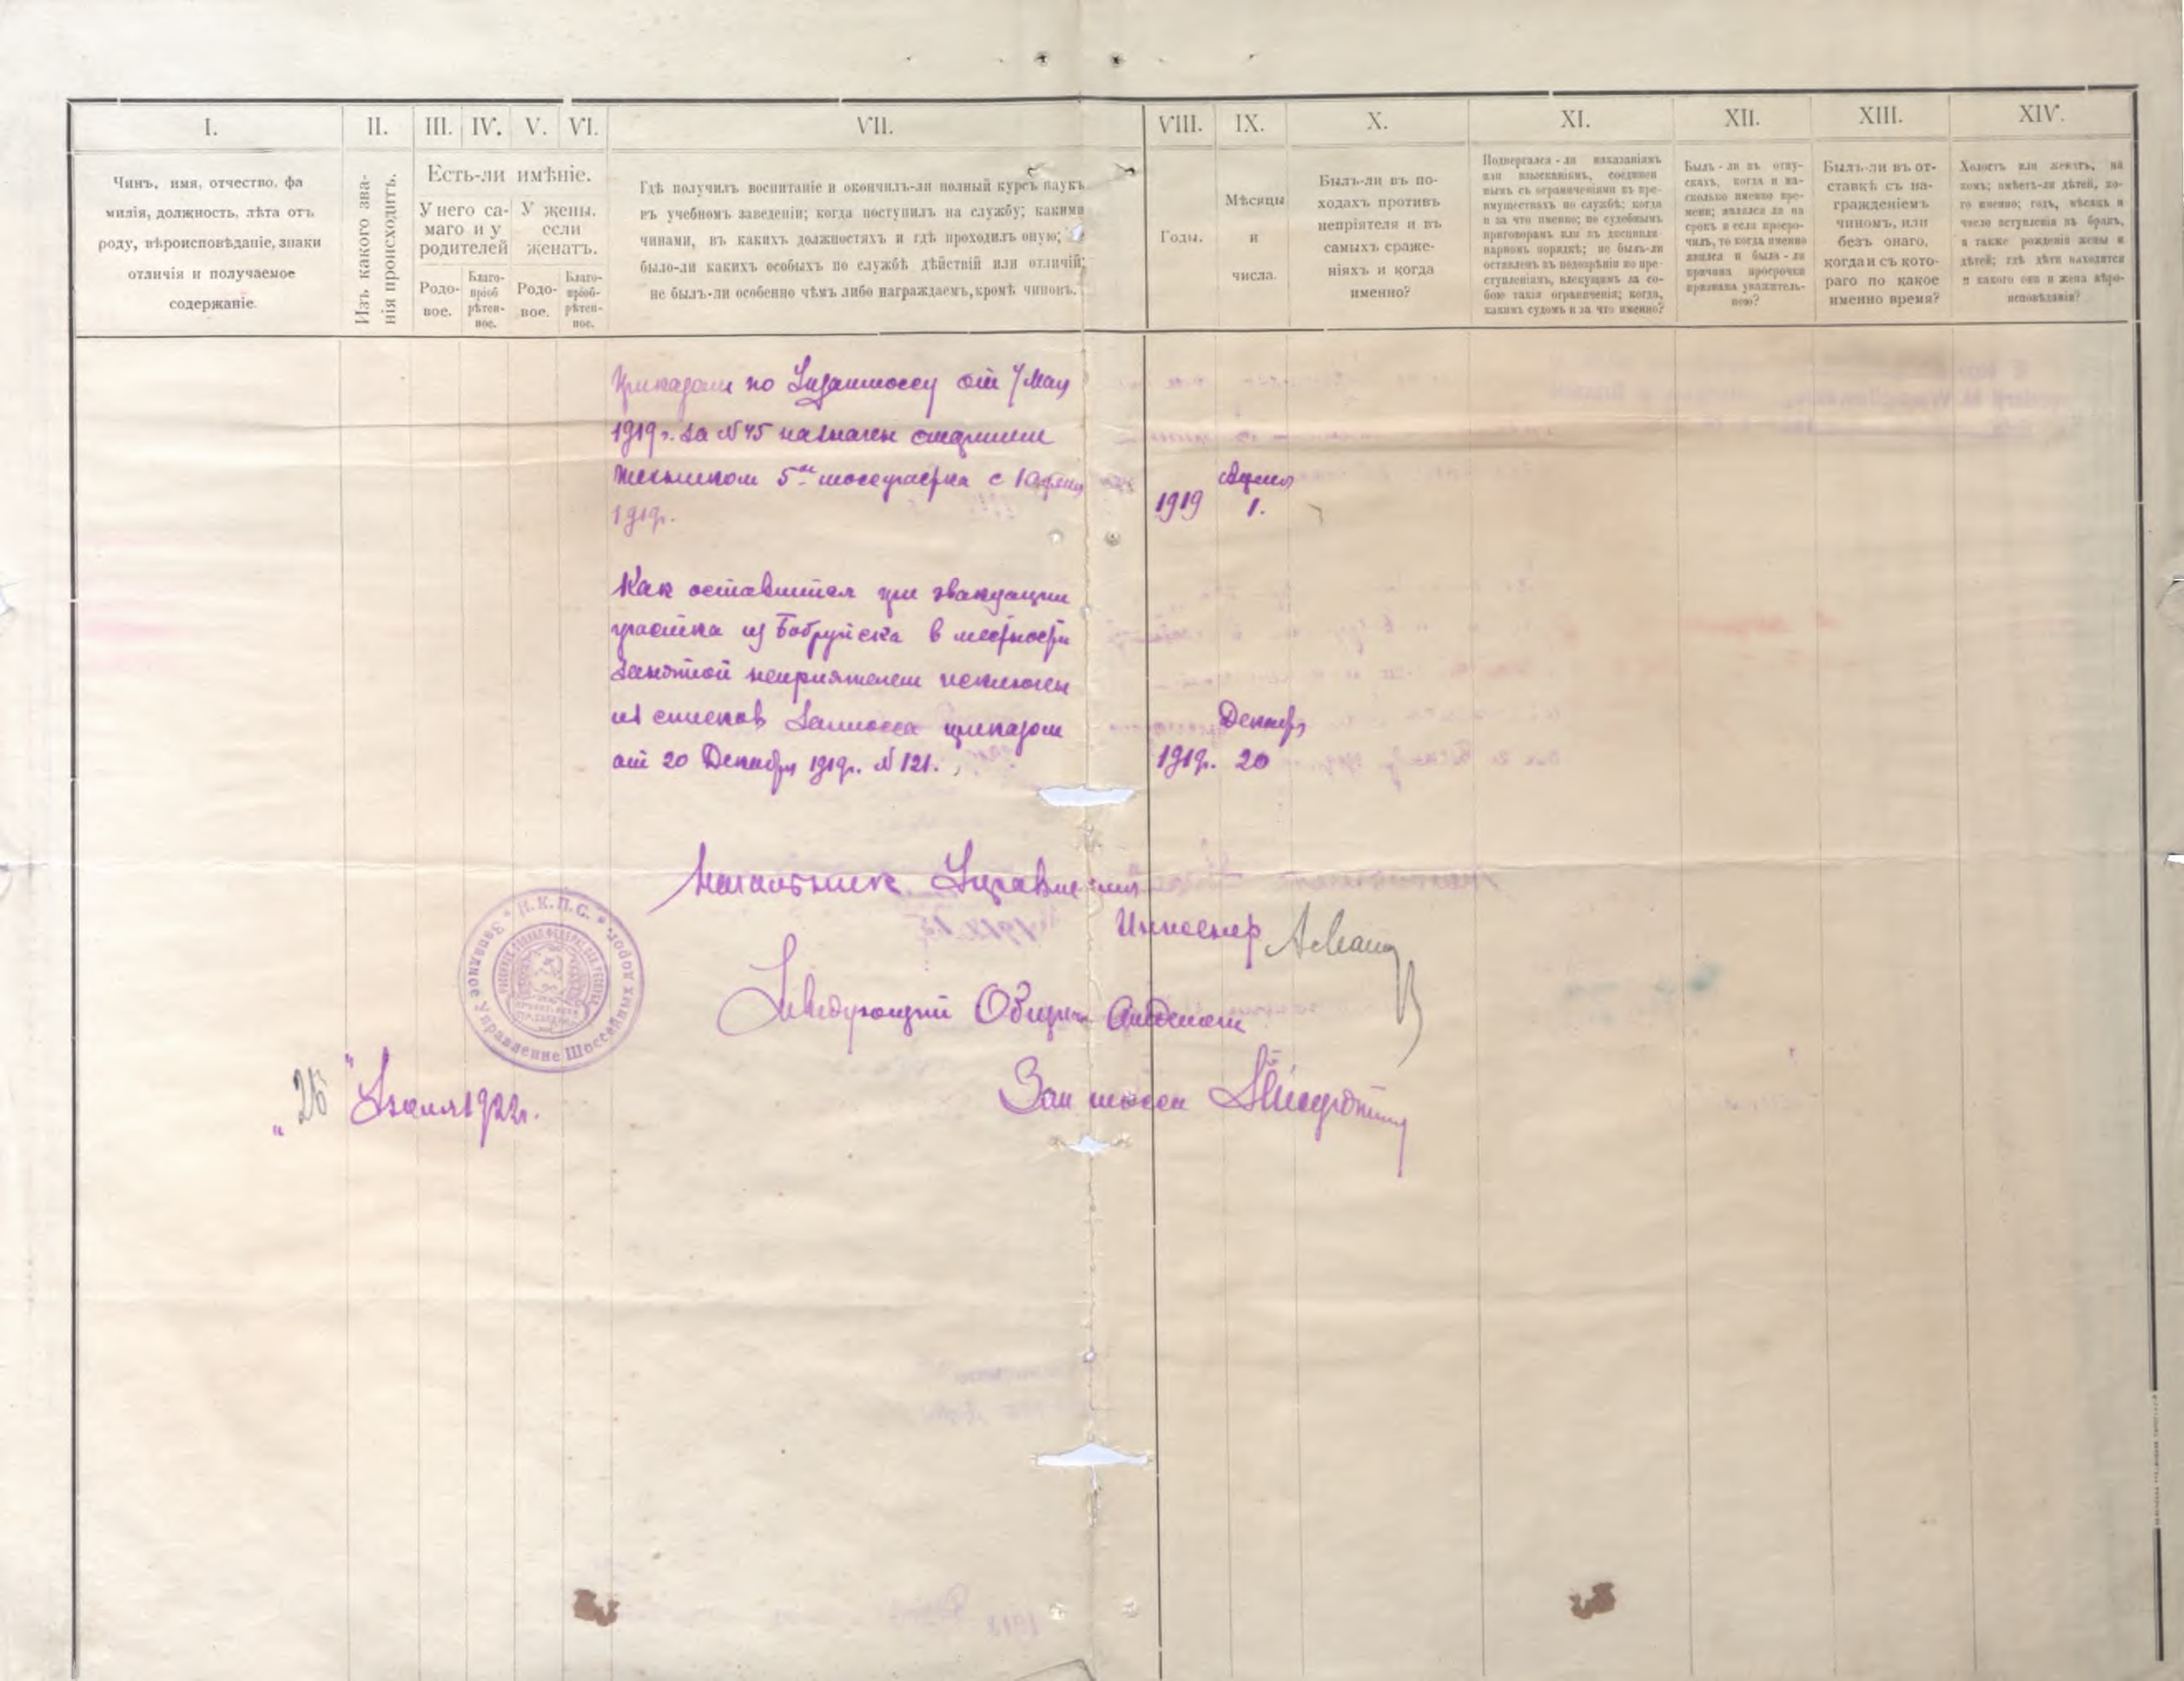 I.
II.
III.
IV.
V.
VI.
VII.
VIII.
IX.
X.
XI.
XII.
XIII.
XIV.
Чинъ, имя, отчество, фа
милія, должность, лѣта отъ
роду, вѣроисповѣданіе, знаки
отличія и получаемое
содержаніе.
Изъ какого зва-
нія происходитъ.
Есть-ли имѣніе.
У него са-
маго и у
родителей
У жены,
если
женатъ.
Родо-
вое.
Благо-
пріоб
рѣтен-
ное.
Родо-
вое.
Благо-
пріоб-
рѣтен-
ное.
Гдѣ получилъ воспитаніе и окончилъ-ли полный курсъ наукъ
въ учебномъ заведеніи; когда поступилъ на службу; какими
чинами, въ какихъ должностяхъ и гдѣ проходилъ оную;
было-ли какихъ особыхъ по службѣ дѣйствій или отличій;
не былъ-ли особенно чѣмъ либо награждаемъ, кромѣ чиновъ.
Годы.
Мѣсяцы
и
числа.
Былъ-ли въ по-
ходахъ противъ
непріятеля и въ
самыхъ сраже-
ніяхъ и когда
именно?
Подвергался-ли наказаніямъ
или взысканіямъ, соединен
нымъ съ ограниченіями въ пре-
имуществахъ по службѣ; когда
и за что именно; по судебнымъ
приговорамъ или въ дисципли-
нарномъ порядкѣ; не былъ-ли
оставленъ въ подозрѣніи по пре-
ступленіямъ, влекущимъ за со-
бою такія ограниченія; когда,
какимъ судомъ и за что именно?
Былъ-ли въ отпу-
скахъ, когда и на-
сколько именно вре-
мени; являлся ли на
срокъ и если просро-
чилъ, то когда именно
явился и была-ли
причина просрочки
признана уважитель-
ною?
Былъ-ли въ от-
ставкѣ съ на-
гражденіемъ
чиномъ, или
безъ онаго,
когда и съ кото-
раго по какое
именно время?
Холостъ или женатъ, на
комъ; имѣетъ-ли дѣтей, ко-
го именно; годъ, мѣсяцъ и
число вступленія въ бракъ,
а также рожденія жены и
дѣтей; гдѣ дѣти находятся
и какого они и жена вѣро-
исповѣданія?
Приказом по от 7 Мая
1919 г. за №45 назначен старшим
техником 5го шосеучастка с 1 Апреля
1919г.
1919
Апреля
1.
Как оставшийся при эвакуации
участка из Бобруйска в местности
занятой неприятелем исключен
из списков Запшосса приказом
от 20 Декабря 1919г. №121.
1919г.
Декабря
20
Начальник Управления
Инженер
Заведующий Общим Отделом
Запшосса
"26" Июля 1922г.
Н.К.П.С.
Западное Управление Шоссейных дорог.